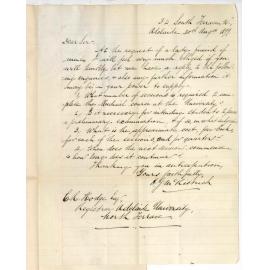 32 South Terrace
Adelaide 20th Augt. 1889
Dear Sir
At the request of a lady friend of
mine I will feel very much obliged if you
will kindly let me have a reply to the follow
ing enquiries, & also any further information it
may be in your power to supply.
1. What number of sessions is required to com
plete the Musical course at the University.
2. Is it necessary for intending students to pass
a preliminary examination
3. What is the approximate cost, for books
for each of the sessions &
4. When does the next session commence
& how long does it continue?
Thanking you in anticipation,
Yours faithfully,
C. R. Hodge Esq.
Registrar Adelaide University
North Terrace